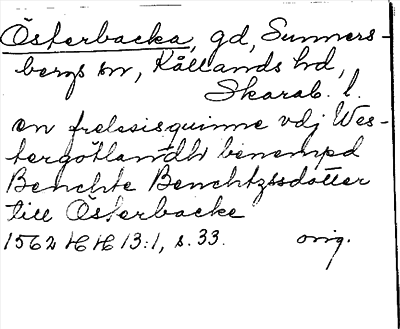 Österbacka, gd, Sunners-
bergs sn, Kållands hd,
Skarab. l.
en frelsisquinne vdj Wes-
tergötlandh benempd
Benchte Benchtzssdotter
till Österbacke
1562 HH 13:1, s. 33. orig.